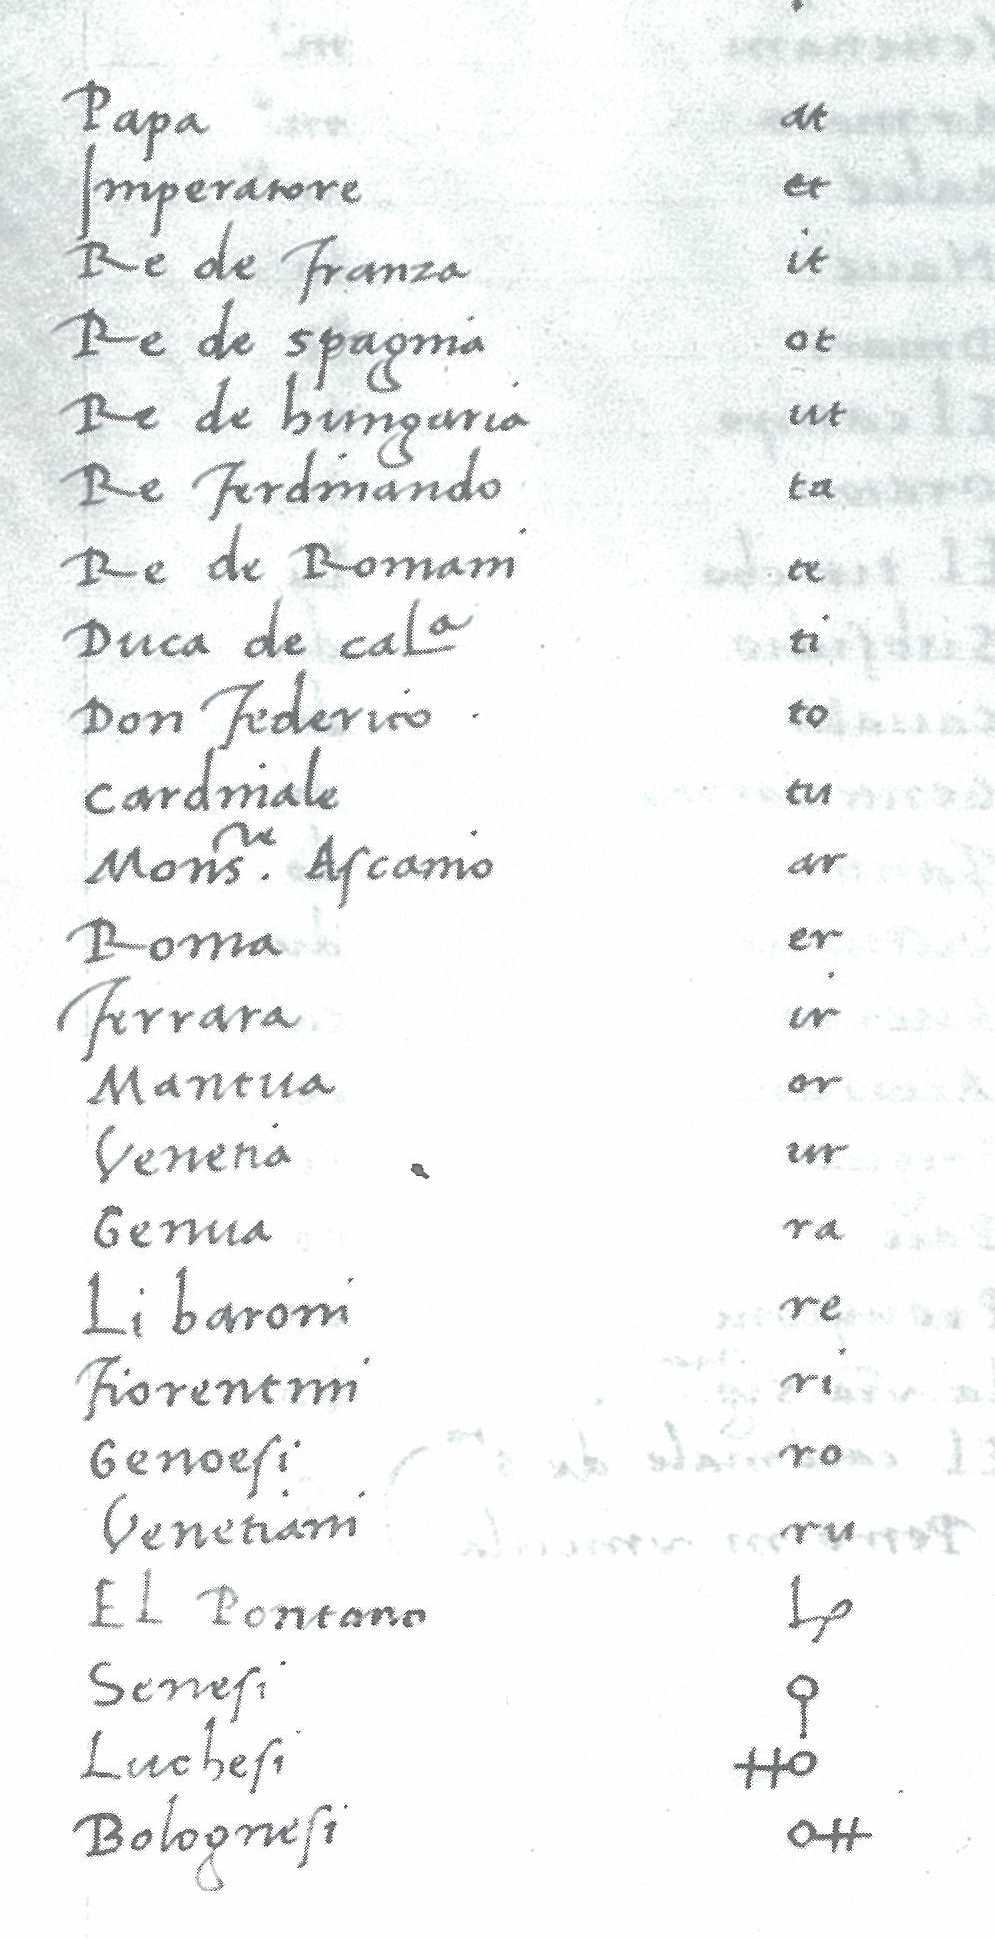 Papa at
Imperatore et
Re de Franza it
Re de spagnia ot
Re de hungaria ut
Re Ferdinando ta
Re de Romani te
Duca de cal^a ti
Don Federico to
cardinale tu
Mons^re. Ascanio ar
Roma er
Ferrara ir
Mantua or
Venetia ur
Genua ra
Li baroni re
Fiorentini ri
Genoesi ro
Venetiani ru
El Pontano
Senesi
Luchesi
Bolognesi